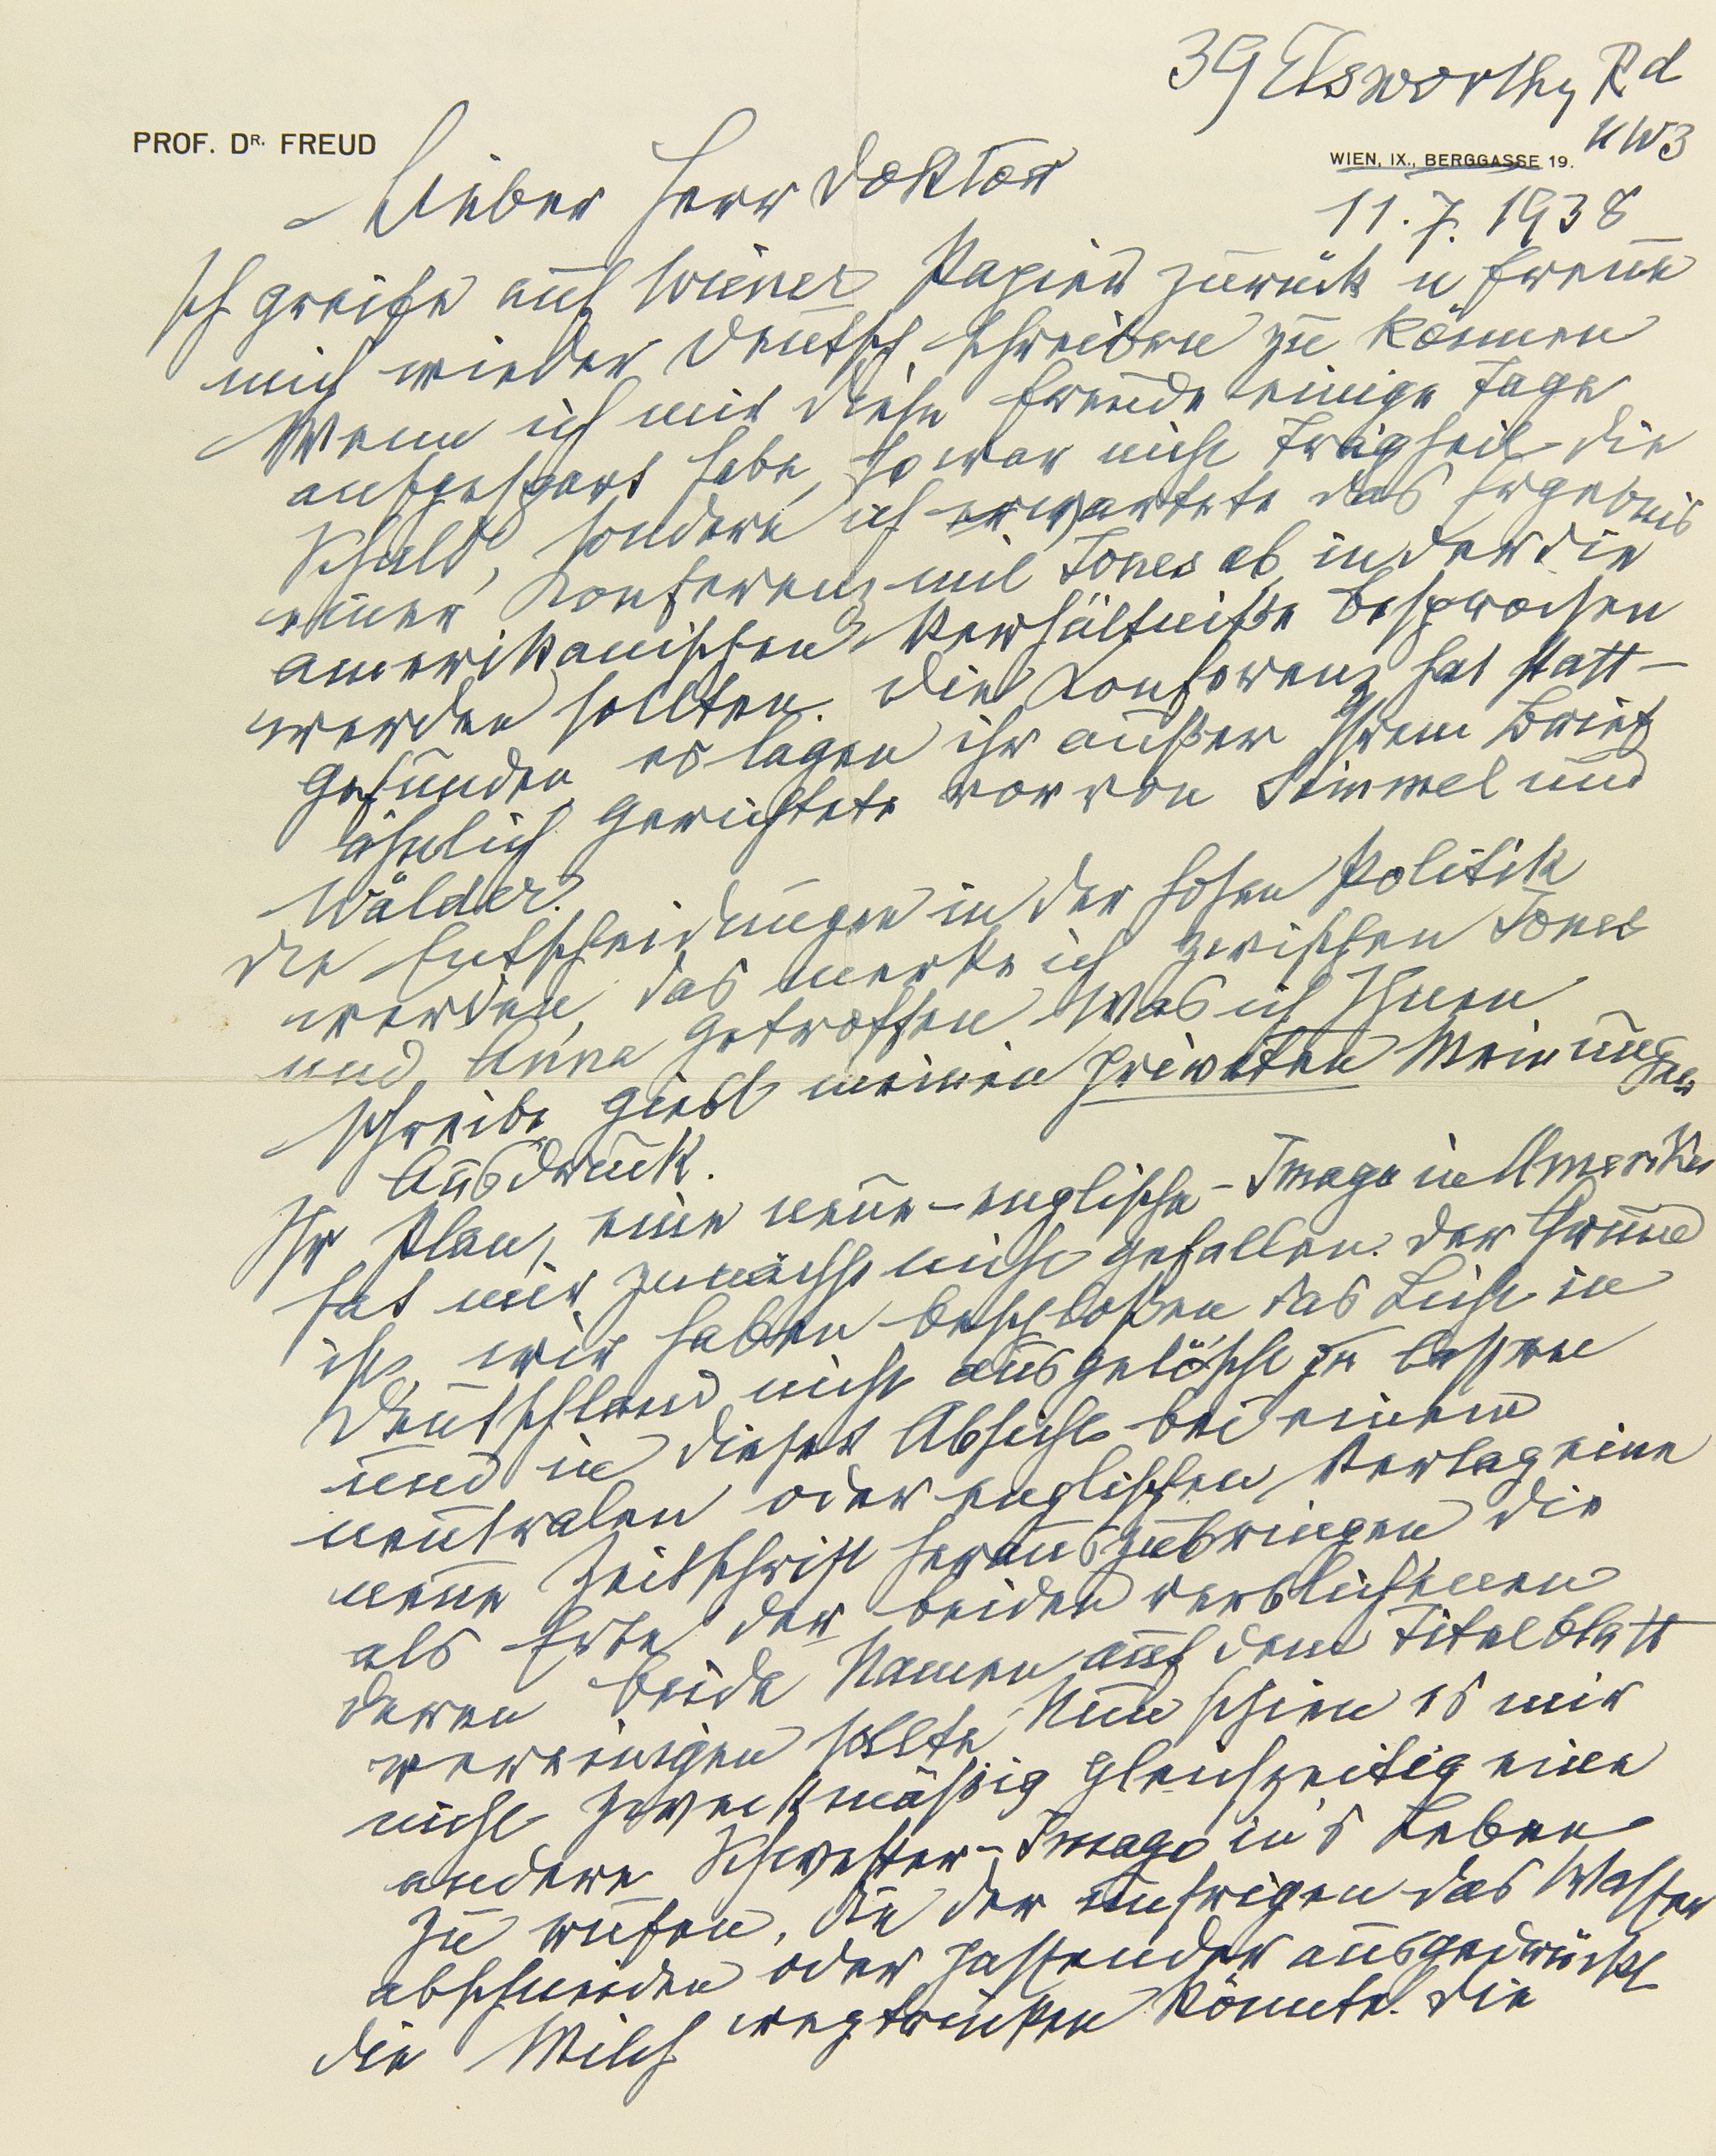 39 Elsworthy Rd
NW3
PROF. DR. FREUD
WIEN, IX., BERGGASSE 19.
11.7.1938
Lieber Herr Doktor
Ich greife auf Wiener Papier zurück u freue
mich wieder deutsch schreiben zu können
Wenn ich mir diese Freude einige Tage
aufgespart habe, so war nicht Trägheit die
Schuld, sondern ich erwartete das Ergebnis
einer Konferenz mit Jones ab, in der die
amerikanischen Verhältniße besprochen
werden sollten. Die Konferenz hat statt-
gefunden es lagen ihr außer Ihrem Brief
ähnlich gerichtete vor von Simmel und
Wälder.
Die Entscheidungen in der hohen Politik
werden, das merke ich zwischen Jones
und Anna getroffen Was ich Ihnen
schreibe giebt meinen privaten Meinungen
Ausdruck.
Ihr Plan, eine neue-englische-Imago in Amerika
hat mir zunächst nicht gefallen. Der Grund
ist, wir haben beschloßen das Licht in
Deutschland nicht ausgelöscht zu lassen
und in dieser Absicht bei einem
neutralen oder englischen Verlag eine
neue Zeitschrift herauszubringen die
als Erbe der beiden verblichenen
deren beide Namen auf dem Titelblatt
vereinigen sollte Nun schien es mir
nicht zweckmäßig gleichzeitig eine
andere Schwester-Imago in's Leben
zu rufen, die der unsrigen das Wasser
abschneiden oder passender ausgedrückt
die Milch wegtrinken könnte. Die